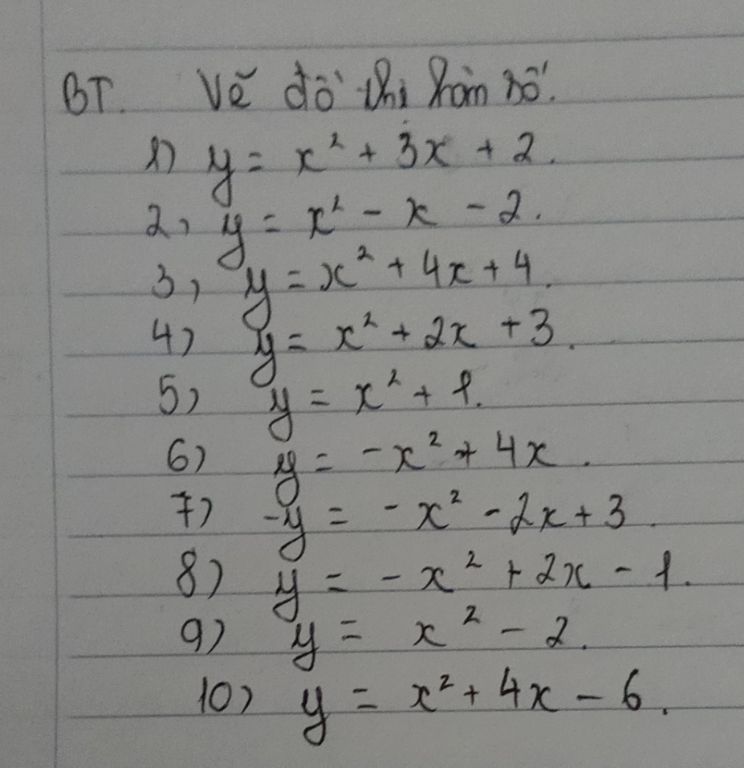 BT. Vẽ đồ thị hàm số.
1) y = x² + 3x + 2.
2, y = x² - x - 2.
3, y = x² + 4x + 4.
4) y = x² + 2x + 3.
5) y = x² + 1.
6) y = -x² + 4x.
7) -y = -x² - 2x + 3.
8) y = -x² + 2x - 1.
9) y = x² - 2.
10) y = x² + 4x - 6.